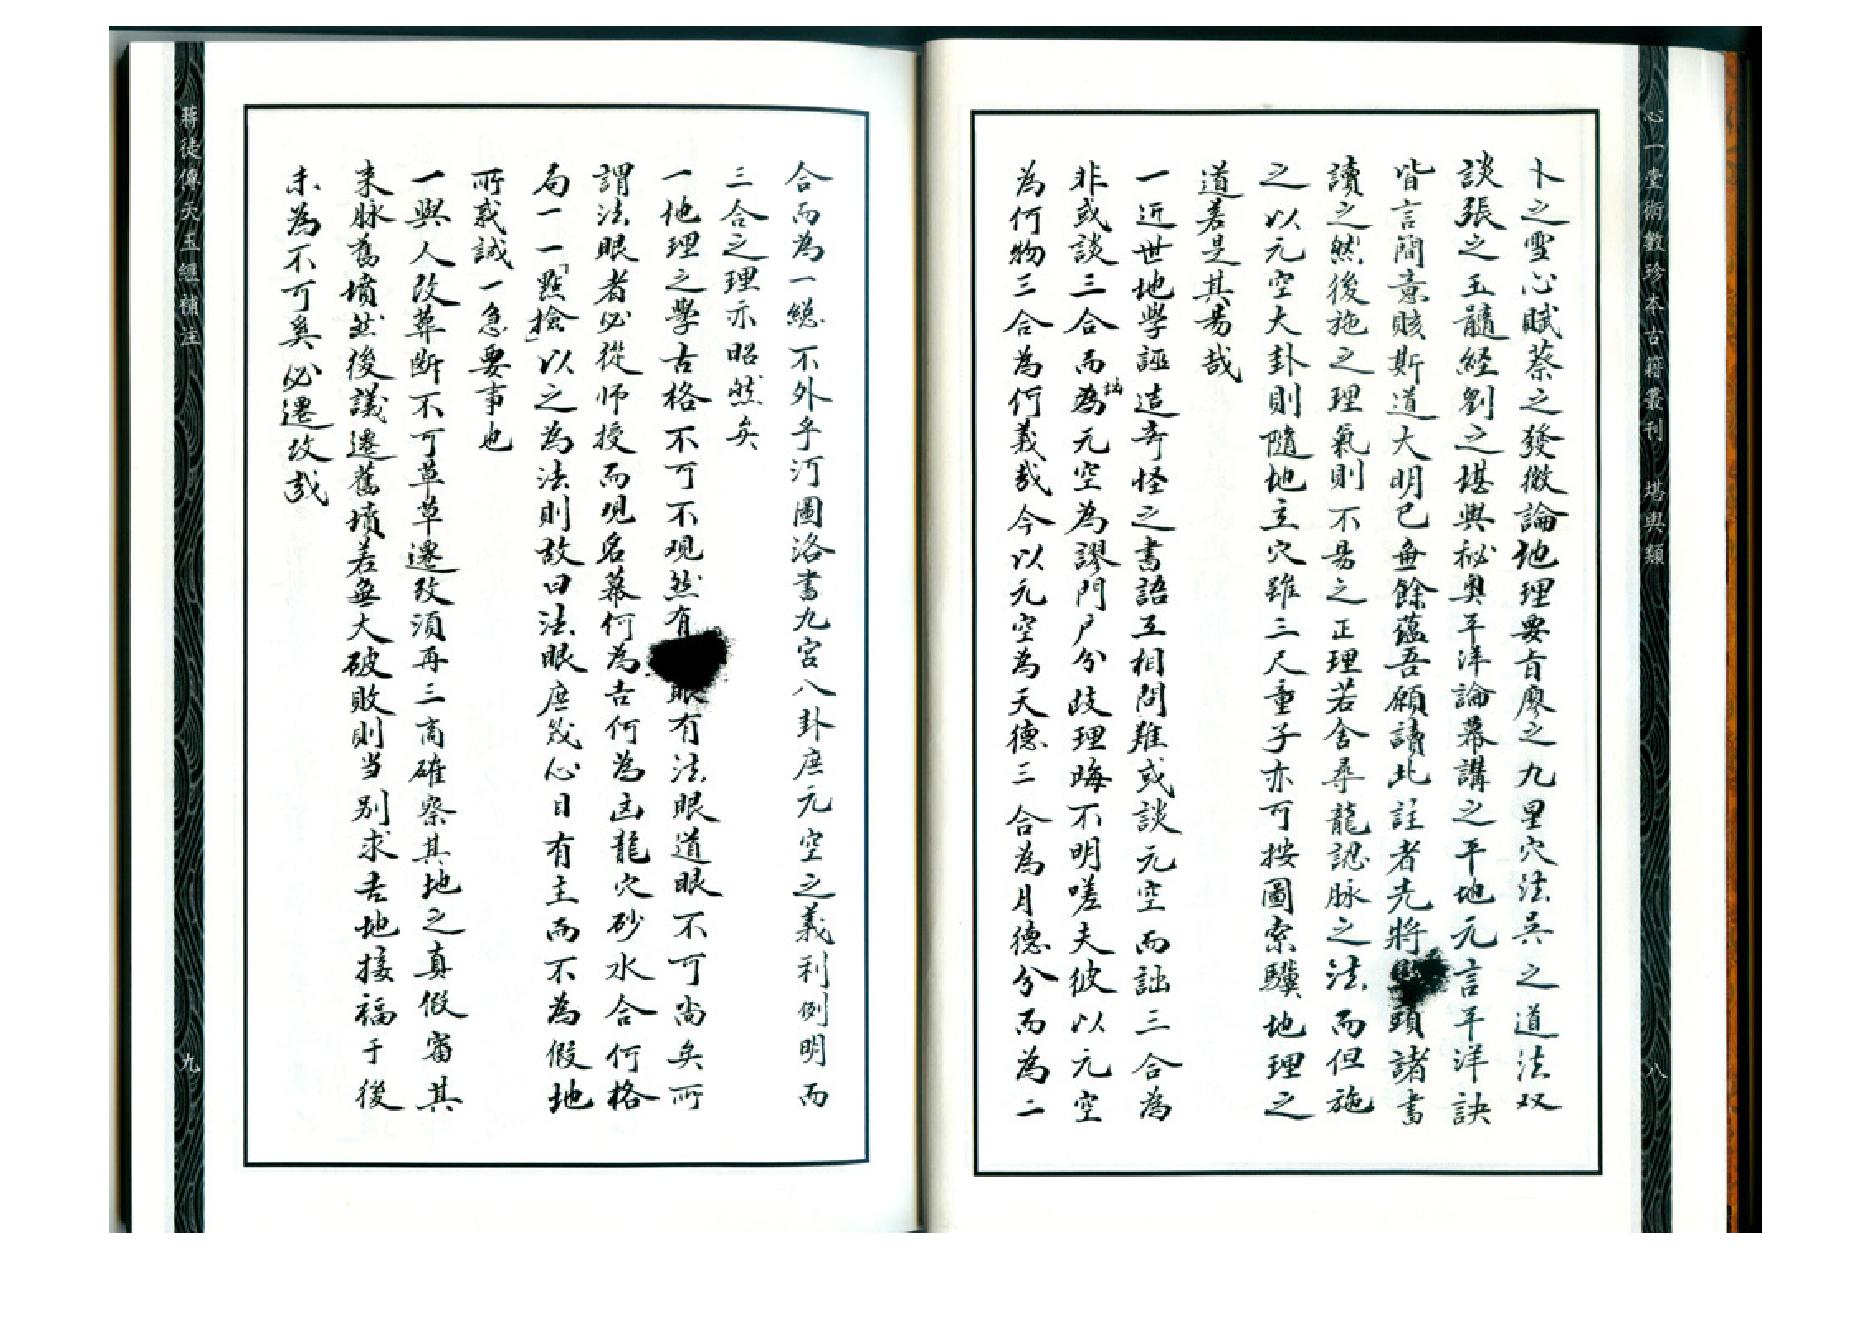 心一堂術數珍本古籍叢刊 堪輿類
八
卜之雪心賦蔡之發微論地理要旨廖之九星穴法吳之道法双
談張之玉髓經劉之堪輿秘奧平洋論幕講之平地元言平洋訣
皆言簡意賅斯道大明已無餘蘊吾願讀此註者先將頭諸書
讀之然後施之理氣則不易之正理若舍尋龍認脉之法而但施
之以元空大卦則隨地立穴雖三尺童子亦可按圖索驥地理之
道若是其易哉
一近世地學誣造奇怪之書語互相問難或談元空而詘三合為
非或談三合而詘為元空為謬門戶分歧理晦不明嗟夫彼以元空
為何物三合為何義哉今以元空為天德三合為月德分而為二
合而為一總不外乎河圖洛書九宮八卦庶元空之義利例明而
三合之理亦昭然矣
一地理之學古格不可不观然有眼有法眼道眼不可尚矣所
謂法眼者必從师授而覌名墓何為吉何為凶龍穴砂水合何格
局一一「點搶」以之為法則故曰法眼庶幾心目有主而不為假地
所惑誠一急要事也
一與人改葬斷不可草草遷改須再三商確察其地之真假審其
来脉舊墳然後議遷舊墳若無大破敗則当别求吉地接福于後
未為不可奚必遷改哉
蔣徒傳天玉經補註
九